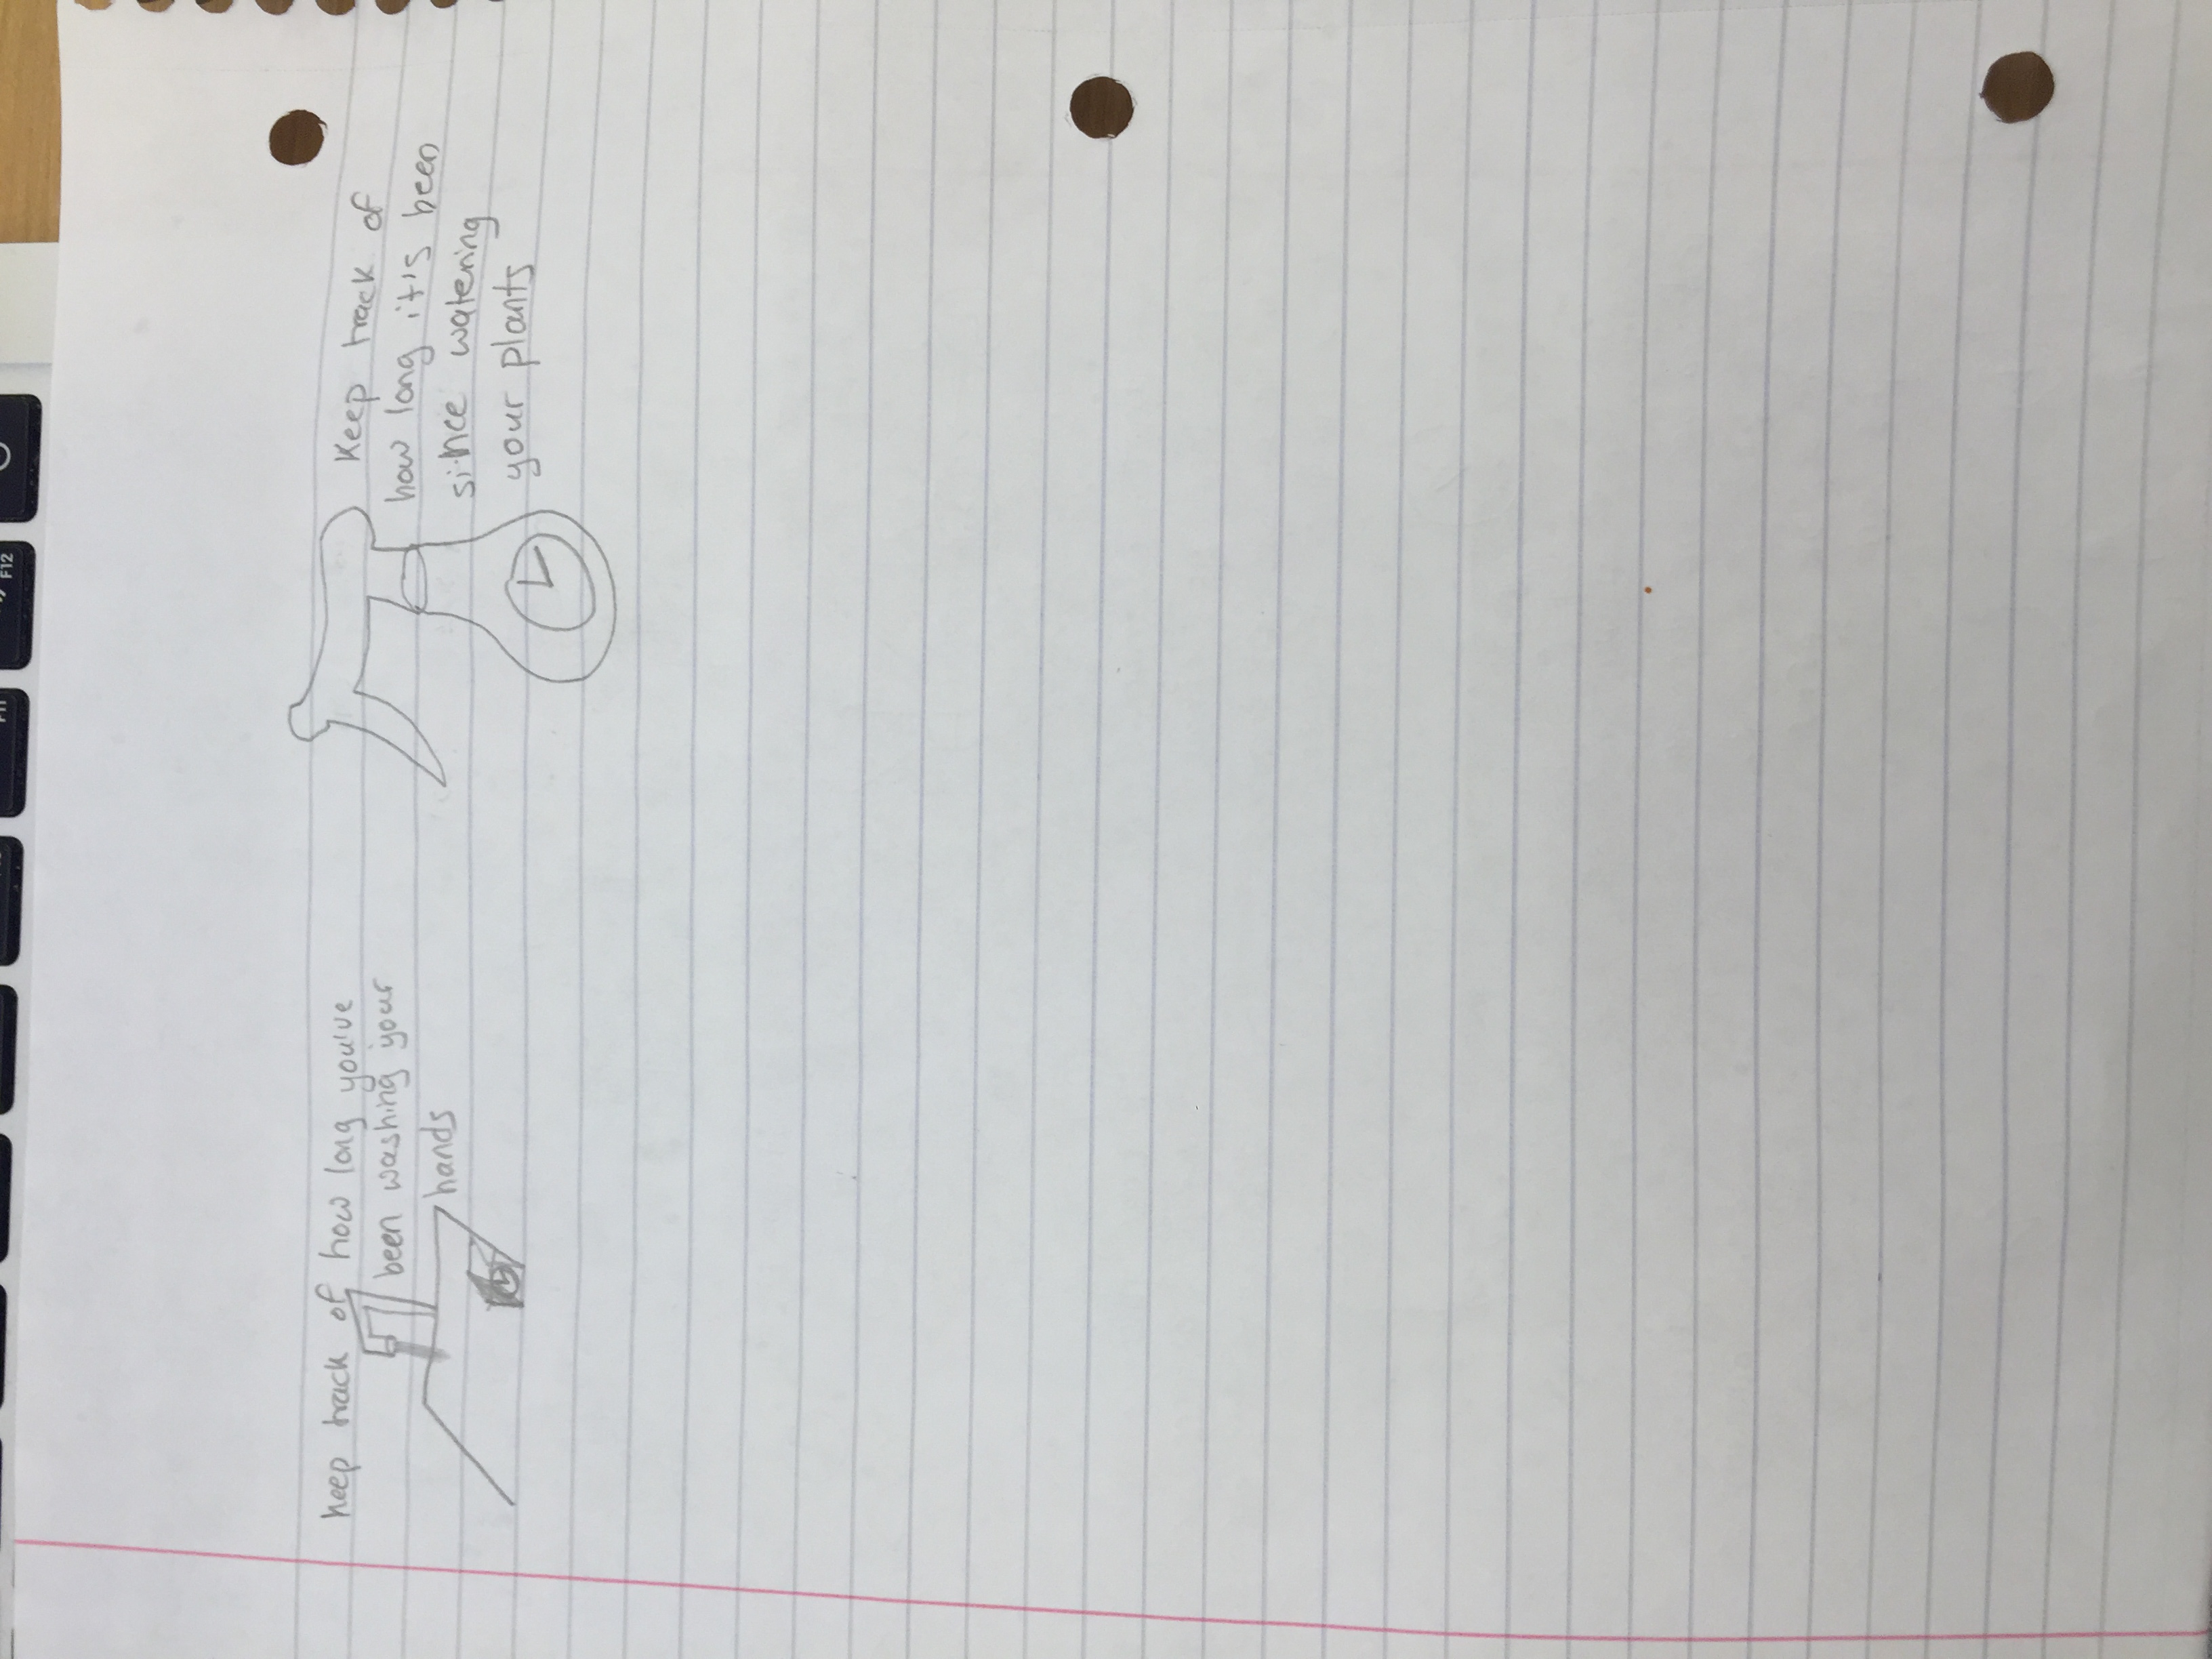 keep track of how long you've
been washing your
hands
Keep track of
how long it's been
since watering
your plants
F11
F12